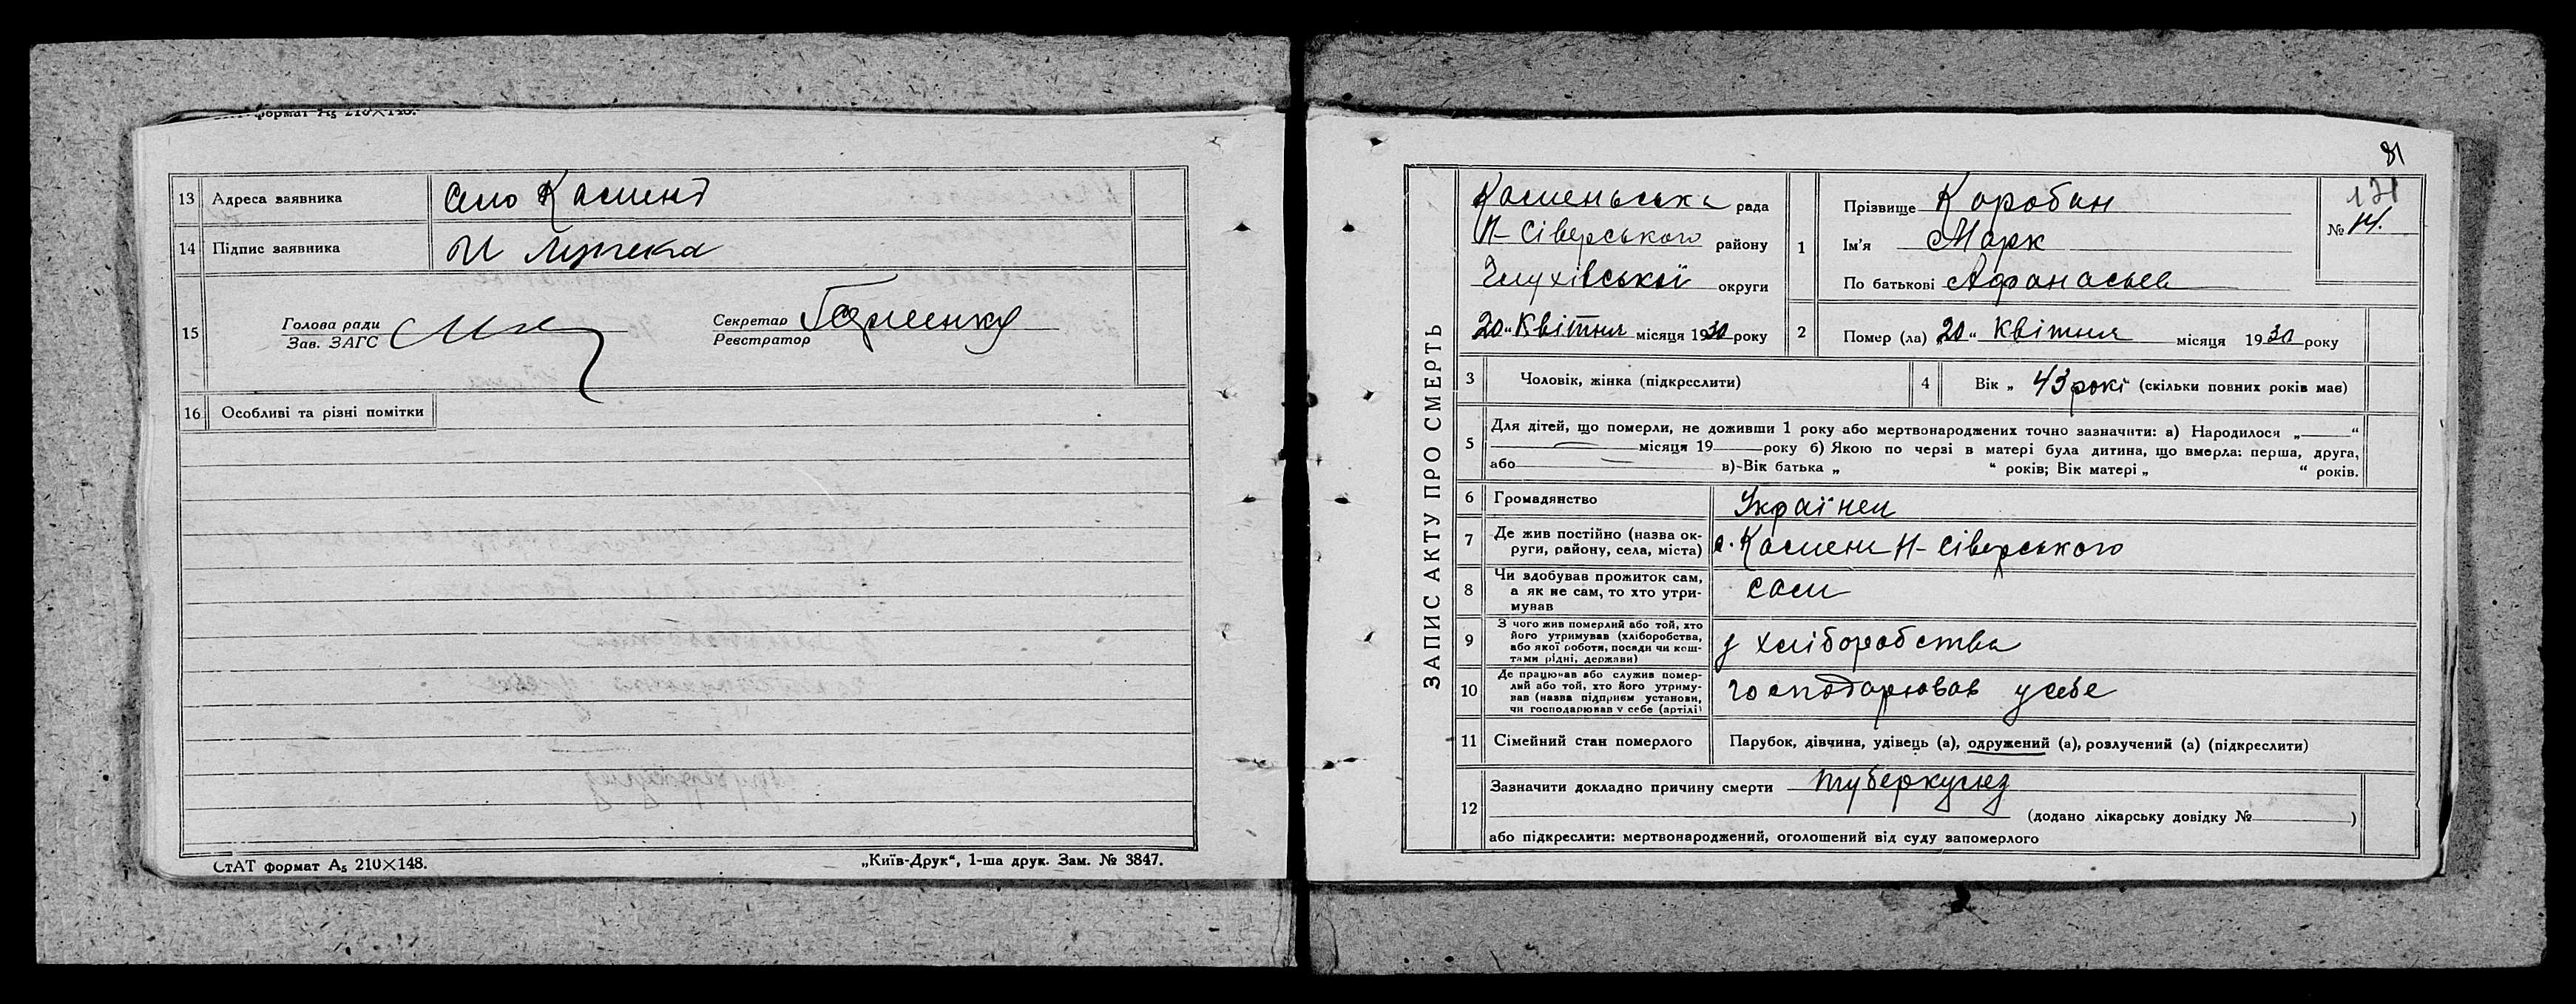 формат А₅ 210×148.
13 Адреса заявника Село Камень
14 Підпис заявника
15 Голова ради
Зав. ЗАГС
Секретар
Реєстратор
16 Особливі та різні помітки
СтАТ формат А₅ 210×148.
„Київ-Друк“, 1-ша друк. Зам. № 3847.
81
ЗАПИС АКТУ ПРО СМЕРТЬ
Каменьська рада
Н-Сіверського району
Глухівської округи
20 „ Квітня місяця 1930 року
1 Прізвище Коробан
Ім'я Марк
По батькові Афанасьев
171
№ 14.
2 Помер (ла) „20“ Квітня місяця 1930 року
3 Чоловік, жінка (підкреслити)
4 Вік „ 43 рокі (скільки повних років має)
5 Для дітей, що померли, не доживши 1 року або мертвонароджених точно зазначити: а) Народилося „ “
місяця 19 року б) Якою по черзі в матері була дитина, що вмерла: перша, друга,
або в) Вік батька „ “ років; Вік матері „ “ років.
6 Громадянство Українец
7 Де жив постійно (назва ок-
руги, району, села, міста) с. Камень Н-Сіверського
8 Чи здобував прожиток сам,
а як не сам, то хто утри-
мував
сам
9 З чого жив померлий або той, хто
його утримував (хліборобства,
або якої роботи, посади чи кош-
тами рідні, держави)
з хліборобства
10 Де працював або служив помер-
лий або той, хто його утриму-
вав (назва підприєм установи,
чи господарював у себе (артілі)
господарював у себе
11 Сімейний стан померлого Парубок, дівчина, удівець (а), одружений (а), розлучений (а) (підкреслити)
12 Зазначити докладно причину смерти туберкульоз
(додано лікарську довідку № )
або підкреслити: мертвонароджений, оголошений від суду запомерлого